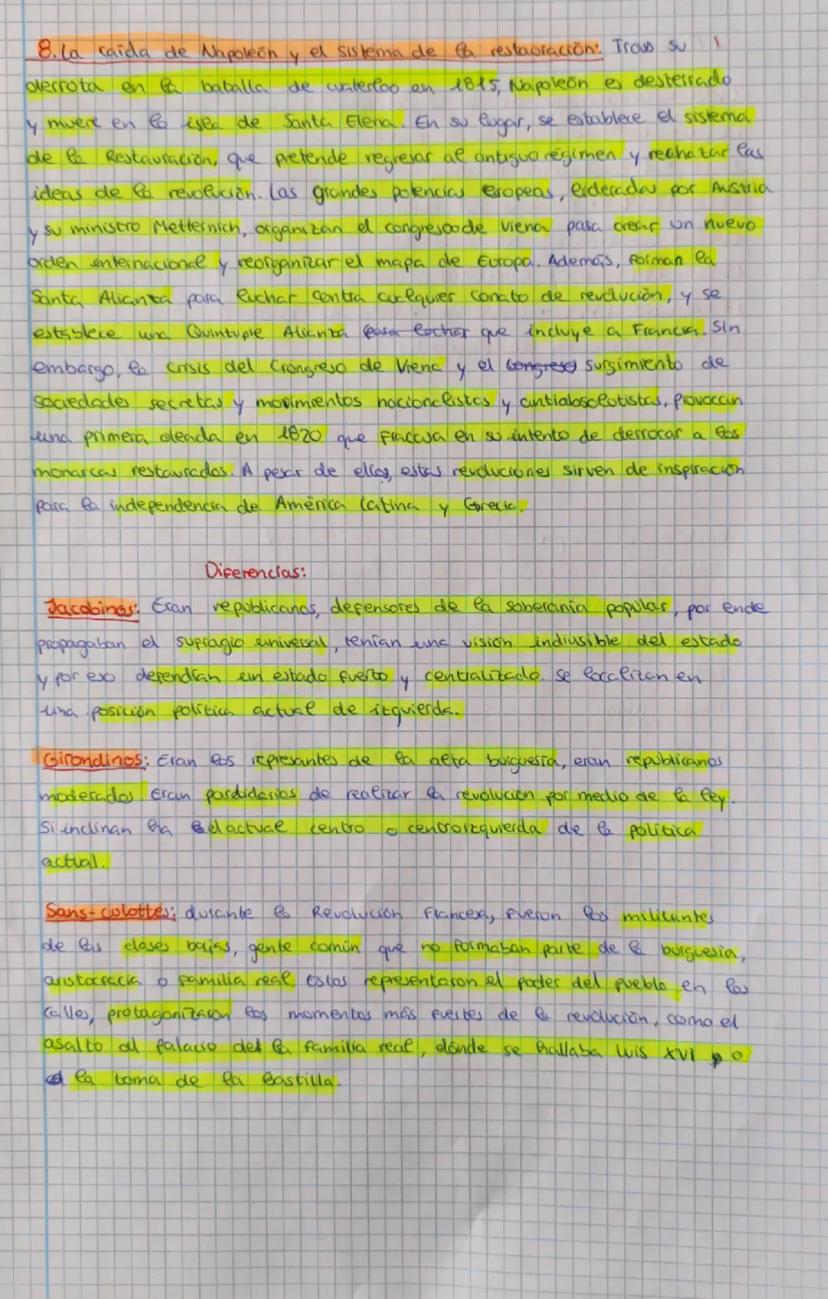 8. La caída de Napoleón y el sistema de la restauración: Tras su
derrota en la batalla de waterloo en 1815, Napoleón es desterrado
y muere en la isla de Santa Elena. En su lugar, se establece el sistema
de la Restauración, que pretende regresar al antiguo régimen y rechazar las
ideas de la revolución. Las grandes potencias europeas, lideradas por Austria
y su ministro Metternich, organizan el congreso de Viena para crear un nuevo
orden internacional y reorganizar el mapa de Europa. Además, forman la
Santa Alianza para luchar contra cualquier conato de revolución, y se
establece una Quíntuple Alianza que incluye a Francia. Sin
embargo, la crisis del Congreso de Viena y el surgimiento de
sociedades secretas y movimientos nacionalistas y antiabsolutistas, provocan
una primera oleada en 1820 que fracasa en su intento de derrocar a los
monarcas restaurados. A pesar de ello, estas revoluciones sirven de inspiración
para la independencia de América Latina y Grecia.
Diferencias:
Jacobinos: Eran republicanos, defensores de la soberanía popular, por ende
propagaban el sufragio universal, tenían una visión indivisible del estado
y por eso defendían un estado fuerte y centralizado. Se localizan en
una posición política actual de izquierda.
Girondinos: Eran los represantes de la alta burguesía, eran republicanos
moderados. Eran pardidarios de realizar la revolución por medio de la ley.
Si inclinan ha el actual centro o centroizquierda de la política
actual.
Sans-culottes: durante la Revolución Francesa, fueron los militantes
de las clases bajas, gente común que no formaban parte de la burguesía,
aristocracia o familia real. Estos representaron el poder del pueblo en las
calles, protagonizaron los momentos más fuertes de la revolución, como el
asalto al palacio de la familia real, dónde se hallaba Luis XVI o
la toma de la Bastilla.